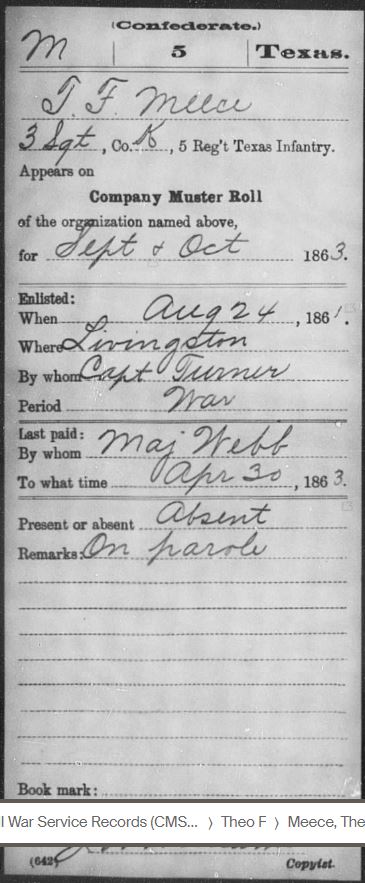 (Confederate.)
M | 5 | Texas.
T. F. Meece
3 Sgt, Co. K, 5 Reg't Texas Infantry.
Appears on
Company Muster Roll
of the organization named above,
for Sept & Oct 1863.
Enlisted:
When Aug 24, 1861.
Where Livingston
By whom Capt Turner
Period War
Last paid:
By whom Maj Webb
To what time Apr 30, 1863.
Present or absent Absent
Remarks: On parole
Book mark:
l War Service Records (CMS... 〉 Theo F 〉 Meece, The
(642)
Copyist.